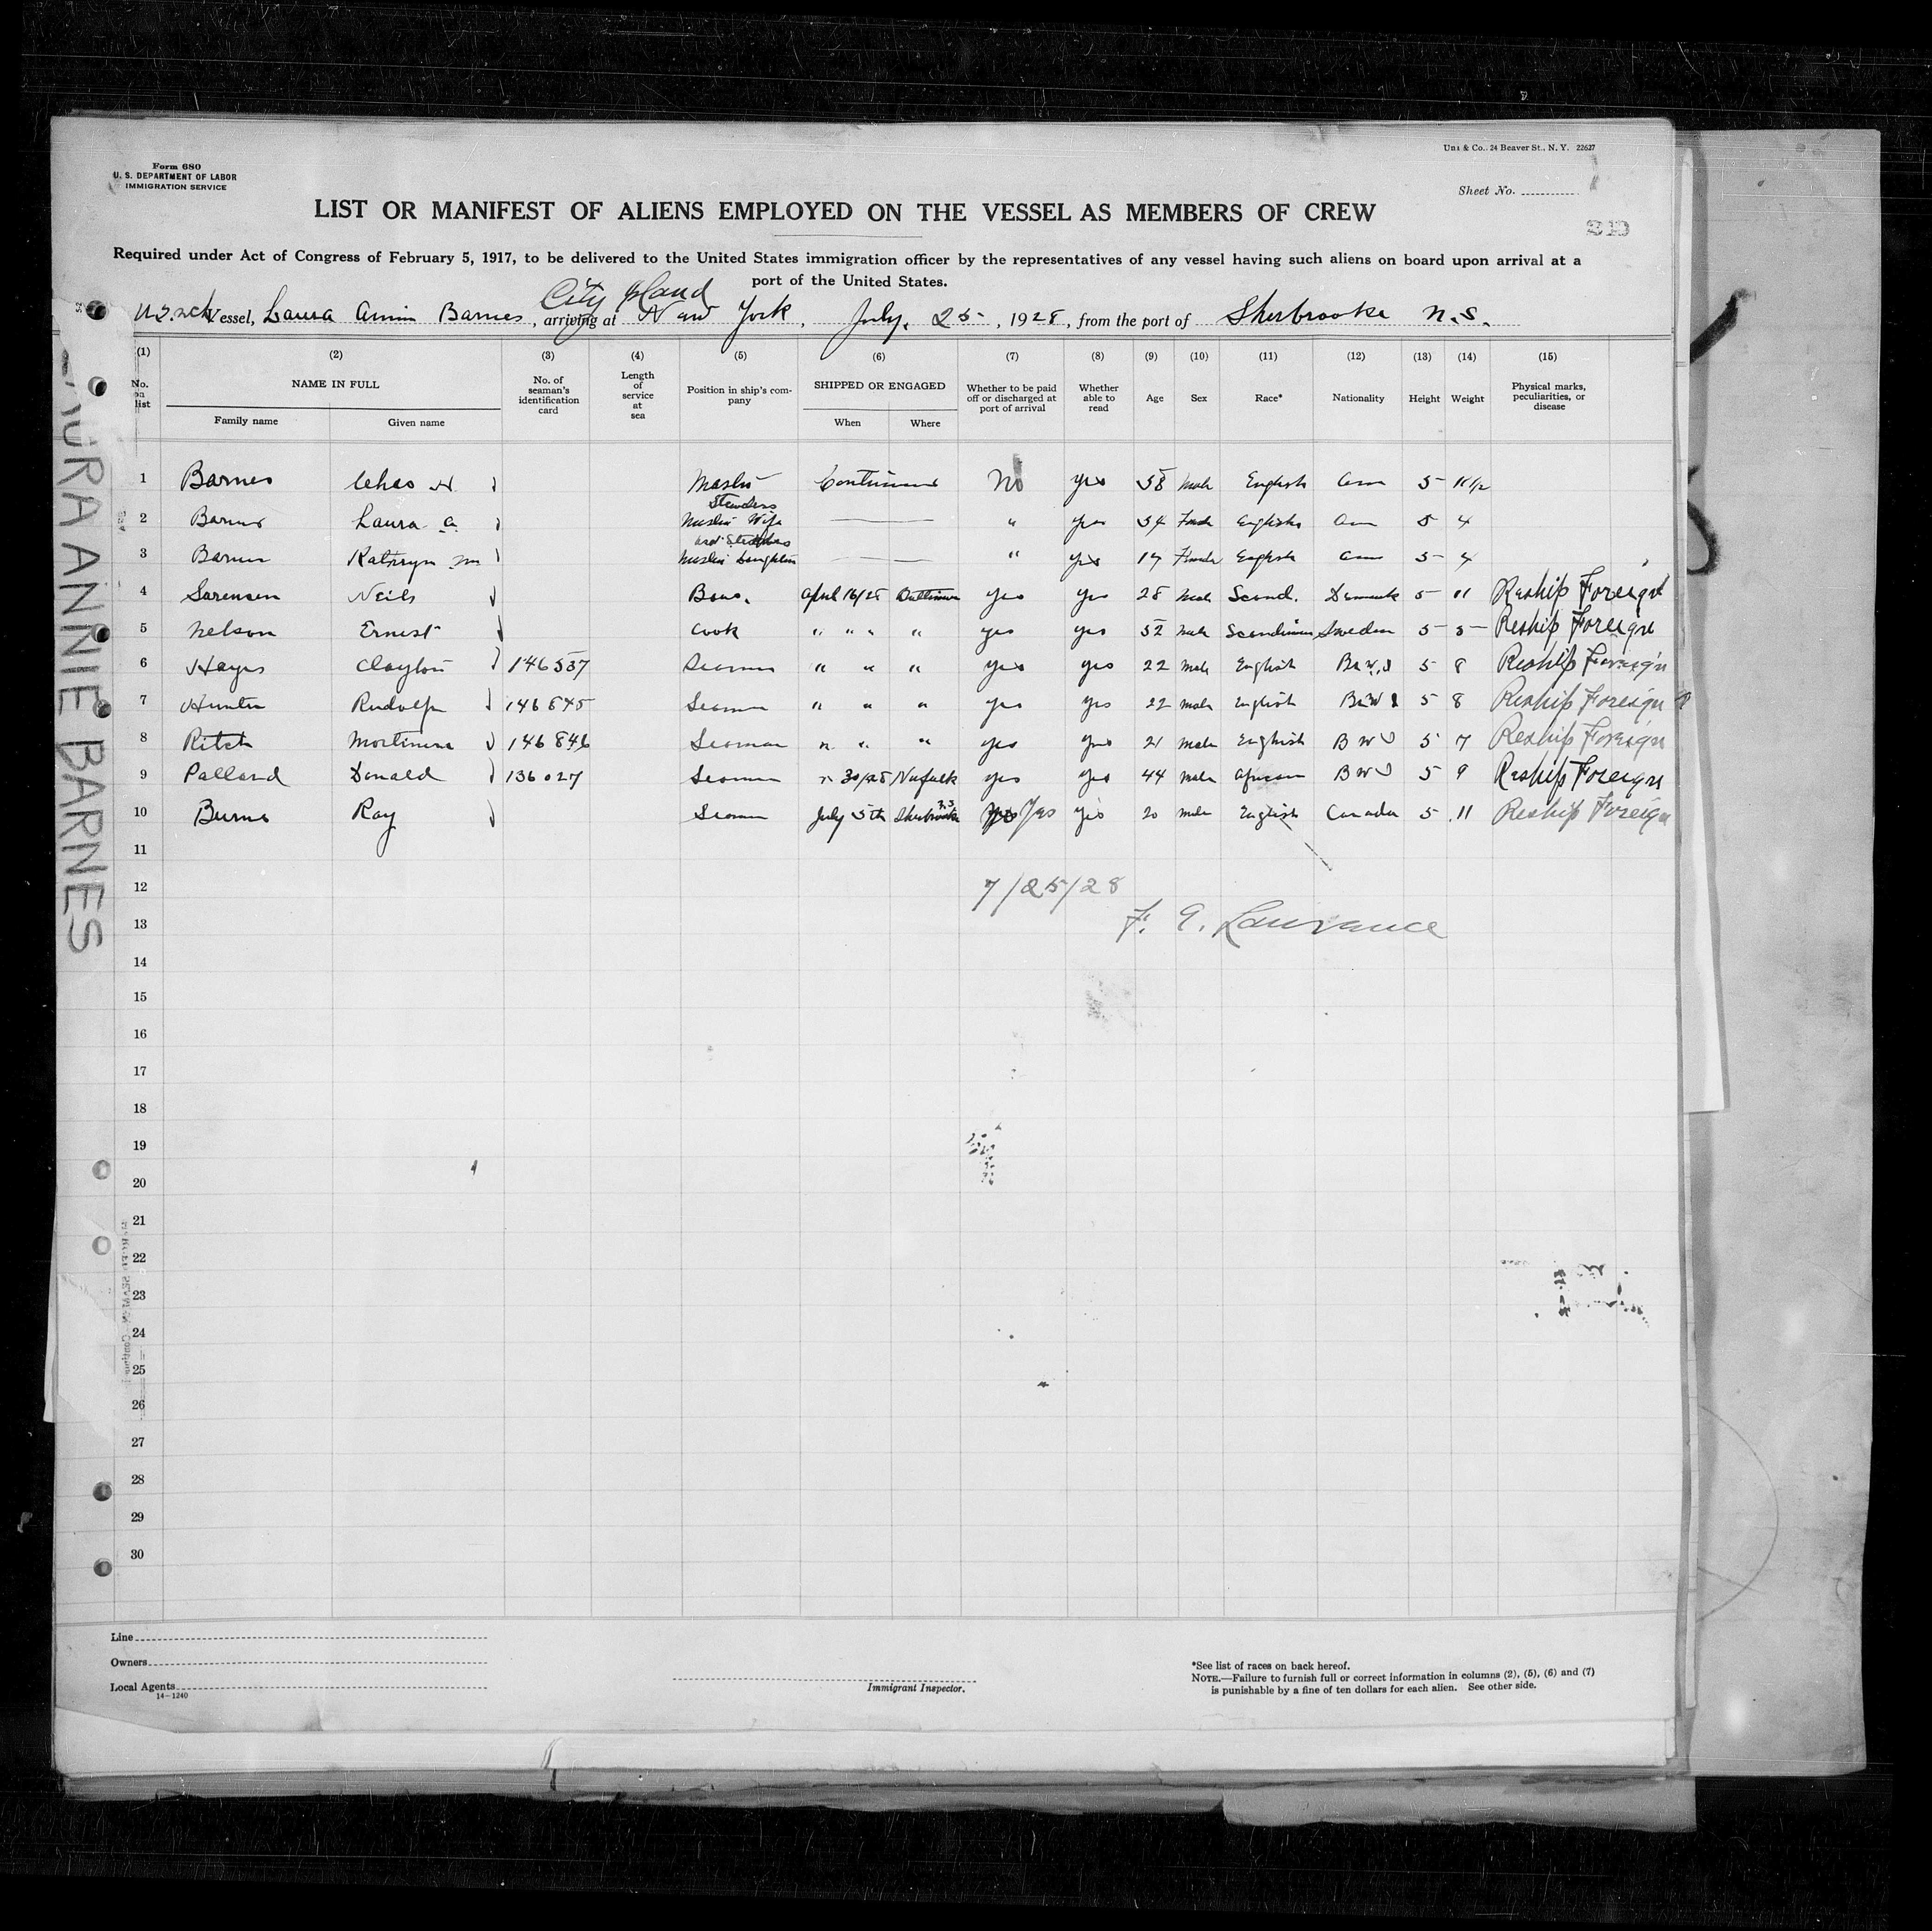 Form 680
U. S. DEPARTMENT OF LABOR
IMMIGRATION SERVICE
Uni & Co., 24 Beaver St., N. Y. 22627
Sheet No.
LIST OR MANIFEST OF ALIENS EMPLOYED ON THE VESSEL AS MEMBERS OF CREW
Required under Act of Congress of February 5, 1917, to be delivered to the United States immigration officer by the representatives of any vessel having such aliens on board upon arrival at a
port of the United States.
City Island
Vessel, Laura Annie Barnes, arriving at New York, July. 25, 1928, from the port of Sherbrooke N.S.
LAURA ANNIE BARNES
(1) (2) (3) (4) (5) (6) (7) (8) (9) (10) (11) (12) (13) (14) (15)
No. on list NAME IN FULL No. of seaman's identification card Length of service at sea Position in ship's company SHIPPED OR ENGAGED Whether to be paid off or discharged at port of arrival Whether able to read Age Sex Race* Nationality Height Weight Physical marks, peculiarities, or disease
Family name Given name When Where
1 Barnes Chas H Master Continuous No yes 58 male English Am 5 11 1/2
Stewardess
2 Barnes Laura A. Master Wife " yes 54 Female English Am 5 4
3 Barnes Kathryn M Master Daughter " yes Female English Am 5 4
4 Sorensen Neils Bosn. April 16/28 Baltimore yes yes 28 male Scand. Denmark 5 11 Reship Foreign
5 Nelson Ernest Cook " " " " yes yes 52 male Scandinavian Sweden 5 5 Reship Foreign
6 Hayes Clayton 146537 Seaman " " " yes yes 22 male English Br W.I 5 8 Reship Foreign
7 Hunter Rudolph 146845 Seaman " " " yes yes 22 male English Br W I 5 8 Reship Foreign
8 Ritch Mortimer 146846 Seaman " " " yes yes 21 male English B W I 5 7 Reship Foreign
9 Palland Donald 136027 Seaman " 30/28 Norfolk yes yes 44 male African B W I 5 9 Reship Foreign
10 Burns Ray Seaman July 5th Sherbrooke N.S. Yes yes 20 male English Canada 5 11 Reship Foreign
11
12 7/25/28
13 F. A. Lawrance
14
15
16
17
18
19
20
21
22
23
24
25
26
27
28
29
30
Line
Owners
Local Agents
14-1240
Immigrant Inspector.
*See list of races on back hereof.
NOTE.—Failure to furnish full or correct information in columns (2), (5), (6) and (7)
is punishable by a fine of ten dollars for each alien. See other side.